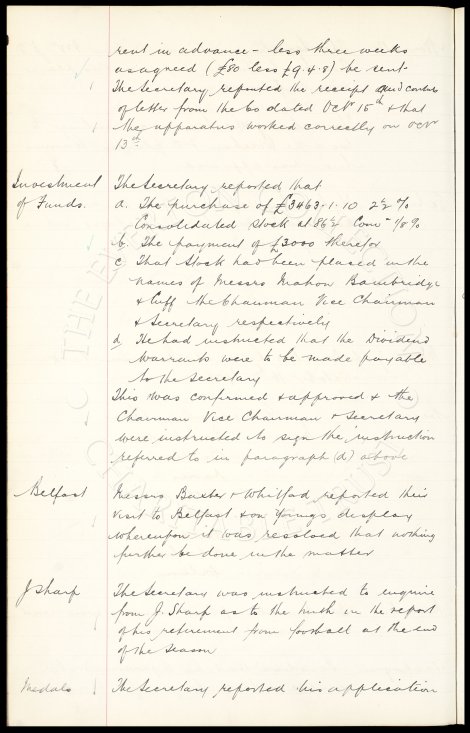 rent in advance - less three weeks
as agreed (£80 less £9.4.8) be sent.
The Secretary reported the receipt and contents
of letter from the Co dated Octr 15th & that
the apparatus worked correctly on Octr
13th.
Investment of Funds.
The Secretary reported that
a. The purchase of £3463.1.10 2½%
Consolidated Stock at 86½ Comn 1/8%
b. The payment of £3000 therefor
c. That Stock had been placed in the
names of Messrs Mahon Bainbridge
& Cuff the Chairman Vice Chairman
& Secretary respectively
d. He had instructed that the Dividend
Warrants were to be made payable
to the Secretary
This was confirmed & approved & the
Chairman Vice Chairman & Secretary
were instructed to sign the instruction
referred to in paragraph (d) above
Belfast
Messrs Baxter & Whitford reported their
visit to Belfast & on Youngs display
whereupon it was resolved that nothing
further be done in the matter
J Sharp
The Secretary was instructed to enquire
from J. Sharp as to the truth in the report
of his retirement from football at the end
of the season
Medals
The Secretary reported his application